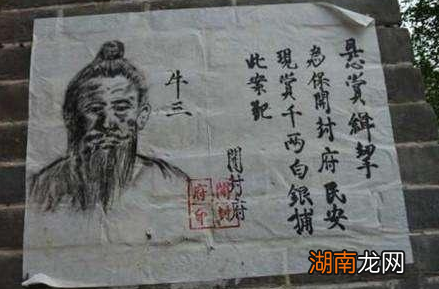 悬賞緝拏
為保開封府民安
現賞千两白銀捕
此案犯
開封府
牛三
開封
府印
湖南龙网